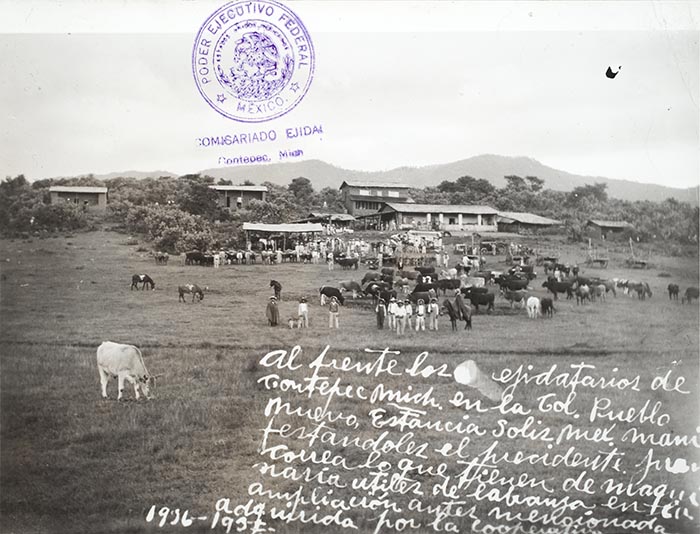 PODER EJECUTIVO FEDERAL
ESTADOS UNIDOS MEXICANOS
MÉXICO.
COMISARIADO EJIDAL
Contepec, Mich
Al frente los ejidatarios de
Contepec Mich. en la Col. Pueblo
Nuevo, Estancia Soliz, Mex. mani
festandoles el precidente Juan
Correa lo que tienen de maqui
naria utiles de labranza en la
ampliación antes mencionada
adquirida por la Cooperativa
1936-1937